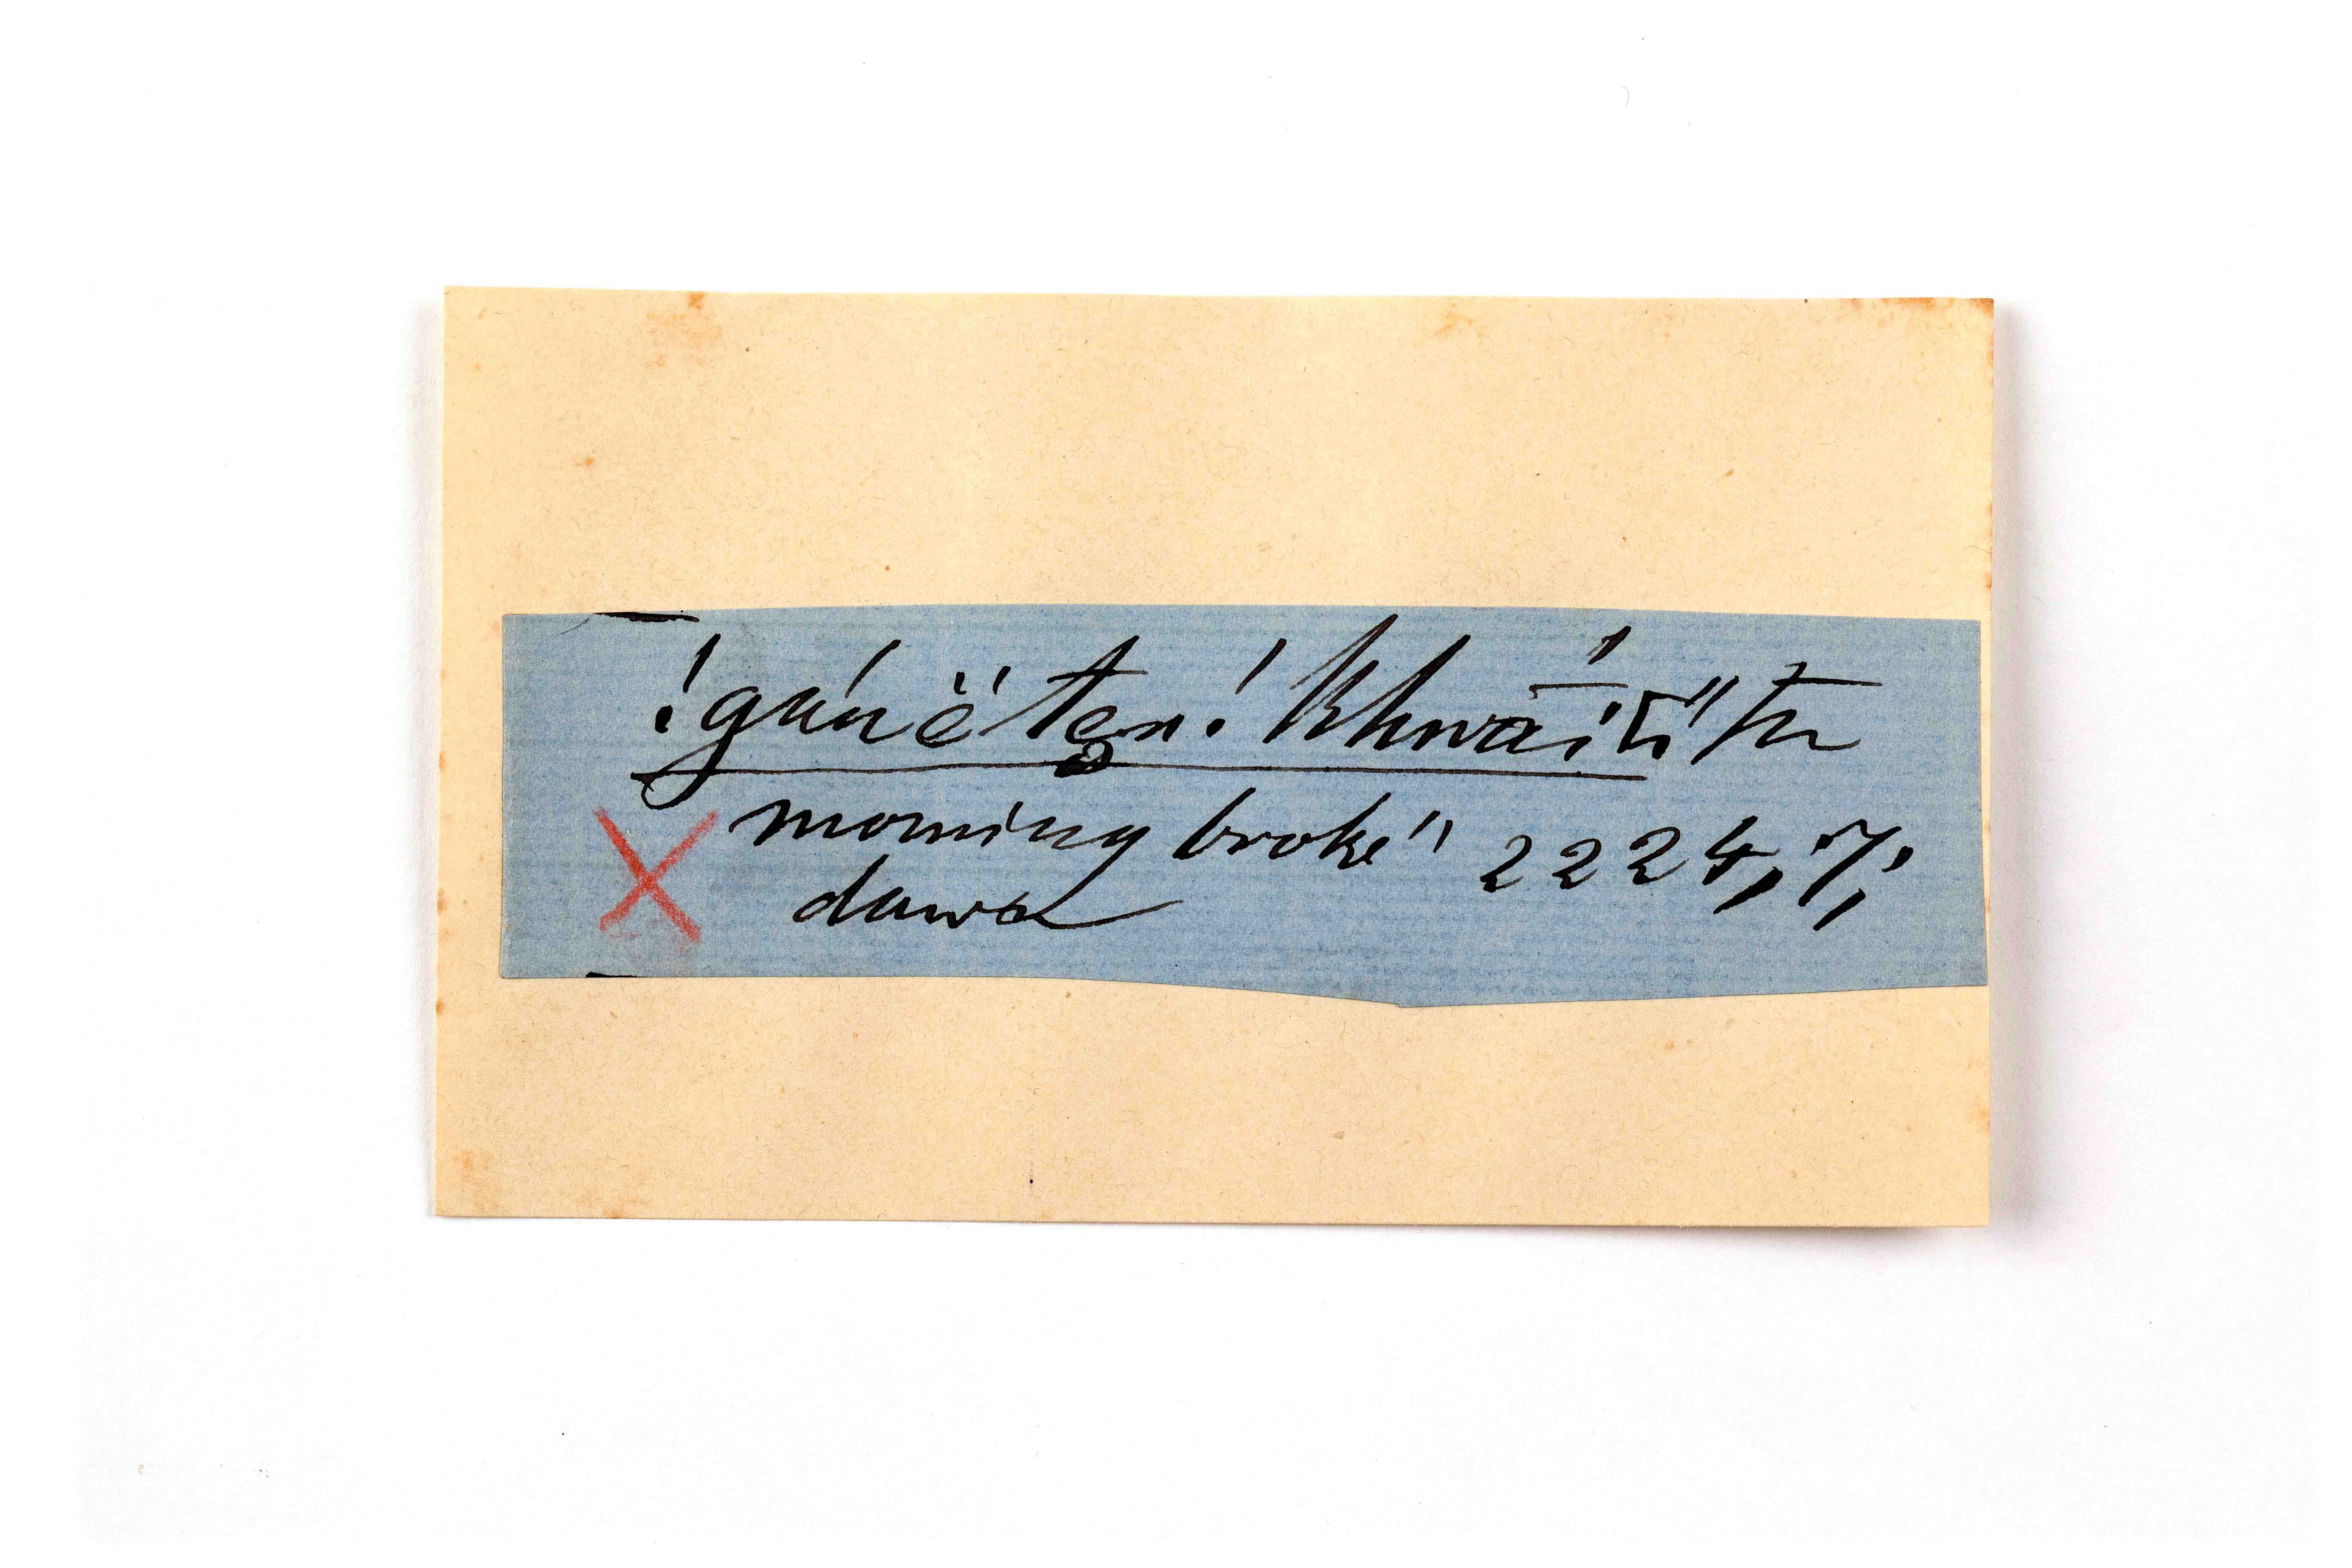 !gáu̇ë te̤n ! khwā́iti" the
morning broke" 2224, ·/.;
dawn